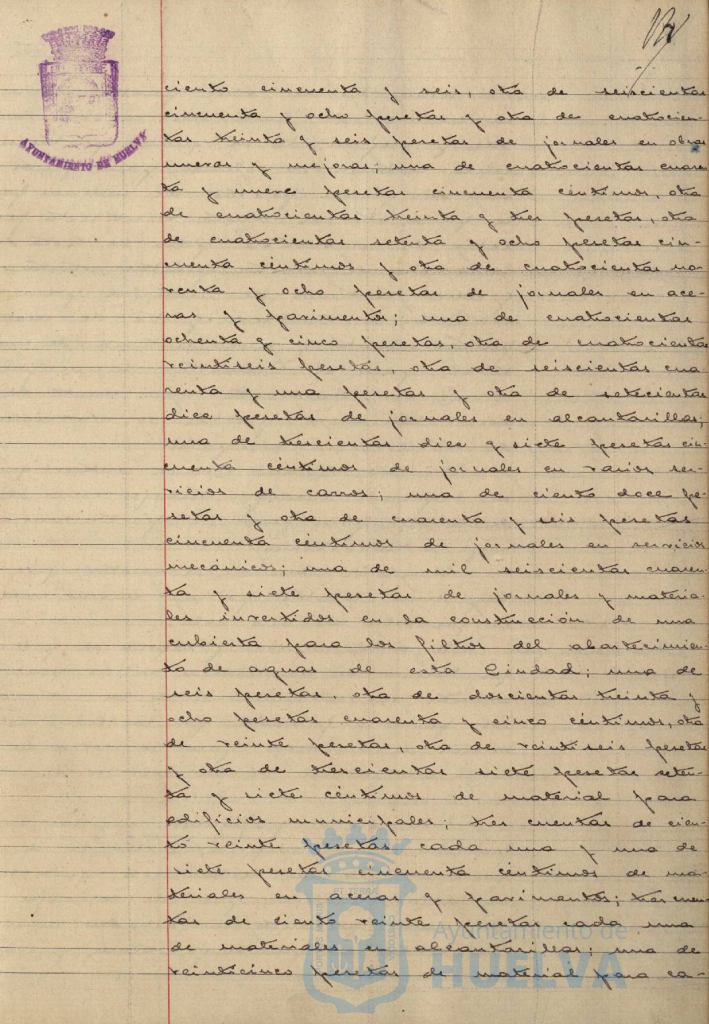 AYUNTAMIENTO DE HUELVA
ciento cincuenta y seis, otra de seiscientas
cincuenta y ocho pesetas y otra de cuatrocien-
tas treinta y seis pesetas de jornales en obras
nuevas y mejoras; una de cuatrocientas cuaren
ta y nueve pesetas cincuenta céntimos, otra
de cuatrocientas treinta y tres pesetas, otra
de cuatrocientas setenta y ocho pesetas cin-
cuenta céntimos y otra de cuatrocientas no-
venta y ocho pesetas de jornales en ace-
ras y pavimentos; una de cuatrocientas
ochenta y cinco pesetas, otra de cuatrocientas
veintiseis pesetas, otra de seiscientas cua
renta y una pesetas y otra de setecientas
diez pesetas de jornales en alcantarillas;
una de trescientas diez y siete pesetas cin-
cuenta céntimos de jornales en varios ser-
vicios de carros; una de ciento doce pe-
setas y otra de cuarenta y seis pesetas
cincuenta céntimos de jornales en servicios
mecánicos; una de mil seiscientas cuaren-
ta y siete pesetas de jornales y materia-
les invertidos en la construcción de una
cubierta para los filtros del abastecimien-
to de aguas de esta Ciudad; una de
seis pesetas, otra de doscientas treinta y
ocho pesetas cuarenta y cinco céntimos, otra
de veinte pesetas, otra de veintiseis pesetas
y otra de trescientas siete pesetas seten-
ta y siete céntimos de material para
edificios municipales; tres cuentas de cien-
to veinte pesetas cada una y una de
siete pesetas cincuenta céntimos de ma-
teriales en aceras y pavimentos; tres cuen-
tas de ciento veinte pesetas cada una
de materiales en alcantarillas; una de
veinticinco pesetas de material para ca-
Ayuntamiento de
HUELVA